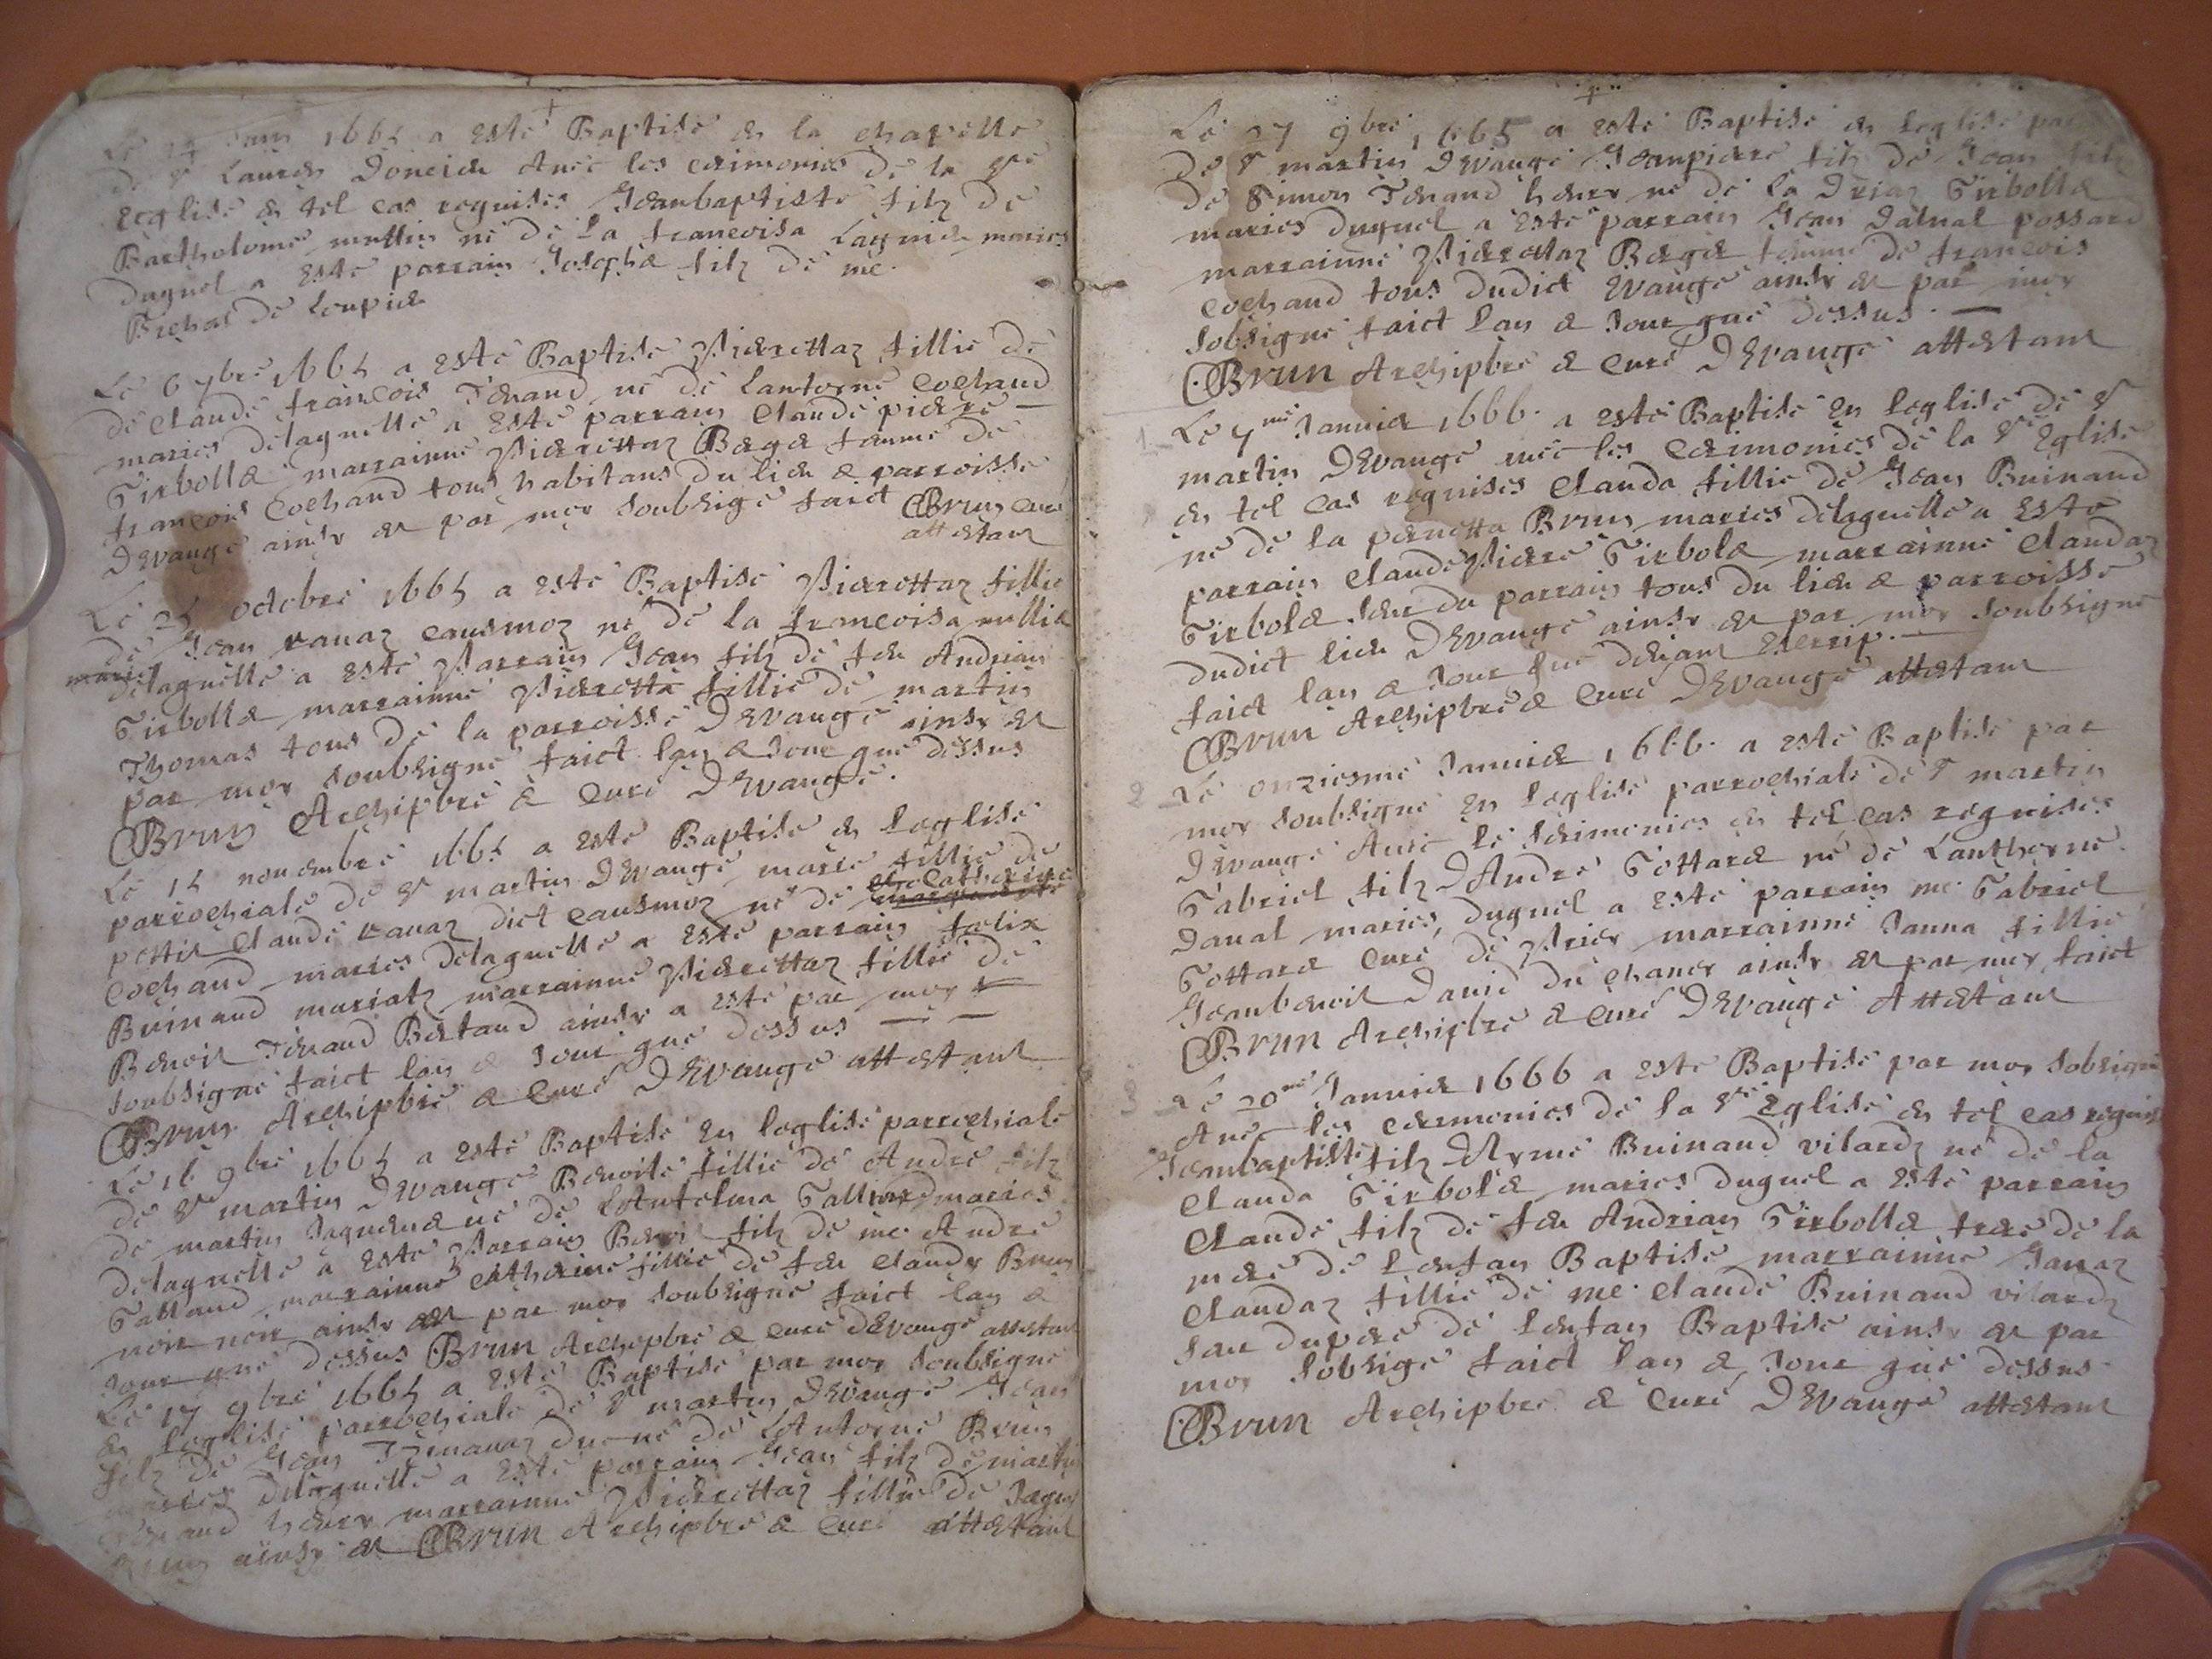 Le 24 1665 a esté Baptisé en la chapelle
de St Lauren Doncieu Avec les cerimonies de la Ste
eeglise en tel cas requises Jeanbaptiste filz de
Bartholome mullin né de la francoisa mariés
duquel a esté parrain Joseph filz de me.
de Loupie
Le 6 7bre 1665 a esté Baptisé Pierrettaz fillie de
de claude francois né de Lantorne Cochand
mariés delaquelle a esté parrain Claude pierre
Girbollet marrainne Pierrettaz Berget femme de
francois Cochand tous habitans du lieu & parroisse
DEvauge ainsy est par moy soubsigé faict Brun curé
attestant
Le 25 octobre 1665 a esté Baptisé Pierrettaz fillie
de Jean ravaz causmoz né de la francoisa
mariés delaquelle a esté Parrain Jean filz de feu Andrian
Girbollet marrainne Pierretta fillie de martin
Thomas tous de la parroisse DEvauge ainsy est
par moy soubsigné faict lan & Jour que dessus
Brun Archipbre & curé DEvauge.
Le 15 novembre 1665 a esté Baptisé en leglise
parrochiale de St martin DEvauge marie fillie de
petit claude ravaz dict causmoz né de catherine
Cochand mariés delaquelle a esté parrain felix
Buinaud mariatz marrainne Pierrettaz fillie de
Benoit Bertand ainsy a esté par moy
soubsigné faict lan & Jour que dessus
Brun Archipbre & Curé DEvauge attestant
Le 16 9bre 1665 a esté Baptisé En leglise parrochiale
de St martin DEvauge Benoite fillie de André filz
de martin né de LAntelma mariés
delaquelle a esté Parrain Benoit filz de me André
Galland marrainne catherine fillie de feu claudy Brun
noir noir ainsy est par moy soubsigné faict lan &
Jour que dessus Brun Archipbre & curé dEvauge attestant
Le 17 9bre 1665 a esté Baptisé par moy soubsigné
en leglise parrochiale de St martin DEvauge Jean
filz de Jean né de LAntorne Brun
mariés delaquelle a esté parrain Jean filz de martin
marrainne Pierrettaz fillie de
ainsy est Brun Archipbre & Curé attestant
Le 27 9bre 1665 a esté Baptisé en leglise par
de St martin DEvauge Jeanpierre filz de Jean filz
de Simon né de la Girbollet
mariés duquel a esté parrain Jean
marrainne Pierrettaz Berget femme de francois
Cochand tous dudict Evauge ainsy est par moy
sobsigné faict lan & Jour que dessus.
Brun Archipbre & Curé DEvauge attestant
1 Le 7me Janvier 1666. a esté Baptisé En leglise de St
martin DEvauge avec les Cerimonies de la Ste Eglise
en tel cas requises Clauda fillie de Jean Buinaud
né de la pernetta Brun mariés delaquelle a esté
parrain claude Pierre Girbolet marrainne claudaz
Girbolet seur du parrain tous du lieu & parroisse
dudict lieu DEvauge ainsy est par moy soubsigné
faict lan & Jour que devant Escrip.
Brun Archipbre & Curé DEvauge attestant
2 Le onziesme Janvier 1666. a esté Baptisé par
moy soubsigné En leglise parrochiale de St martin
DEvauge Avec les serimonies en tel cas requises
Gabriel filz dAndré Gottard né de Lanthorne
Daval mariés, duquel a esté parrain me. Gabriel
Gottard Curé de marrainne Janna fillie
Jeanbenoit David du chaney ainsy est par moy faict
Brun Archipbre & Curé DEvauge Attestant
3 Le 20me Janvier 1666 a esté Baptisé par moy sobsigné
Avec les ceremonies de la Ste Eglise en tel cas requis
Jeanbaptiste filz dAymé Buinaud vilardz né de la
Clauda Girbolet mariés duquel a esté parrain
Claude filz de feu Andrian Girbollet frere de la
mere de Lenfan Baptisé marrainne Janaz
Claudaz fillie de me. claude Buinaud vilardz
seur du pere de Lenfan Baptisé ainsy est par
moy sobsigé faict lan & Jour que dessus
Brun Archipbre & Curé DEvauge attestant